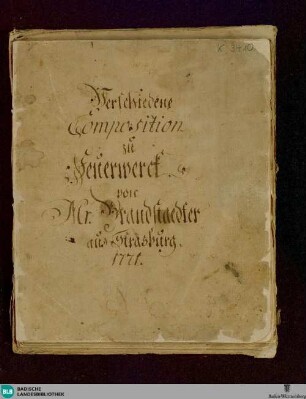 Verschiedene
Composition
zu
Feuerwerck
von
Mr. Brandstaedter
aus Strasburg.
1771.
BLB
BADISCHE
LANDESBIBLIOTHEK
Baden-Württemberg